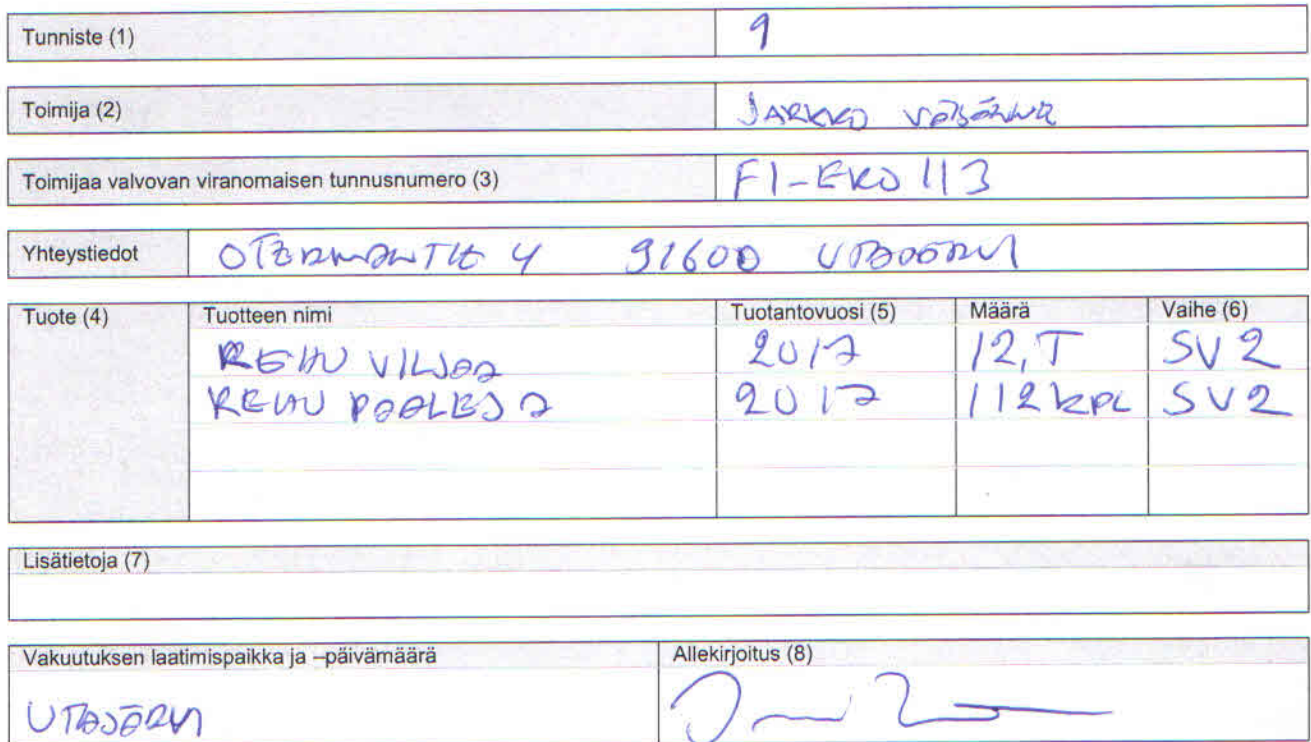 Tunniste (1) 9
Toimija (2) JARKKO VÄISÄNEN
Toimijaa valvovan viranomaisen tunnusnumero (3) FI-EKO 113
Yhteystiedot OTERMANTIE 4 91600 UTAJÄRVI
Tuote (4) Tuotteen nimi Tuotantovuosi (5) Määrä Vaihe (6)
REHU VILJAA 2017 12,T SV 2
REHU PAALEJA 2017 112 KPL SV 2
Lisätietoja (7)
Vakuutuksen laatimispaikka ja –päivämäärä Allekirjoitus (8)
UTAJÄRVI